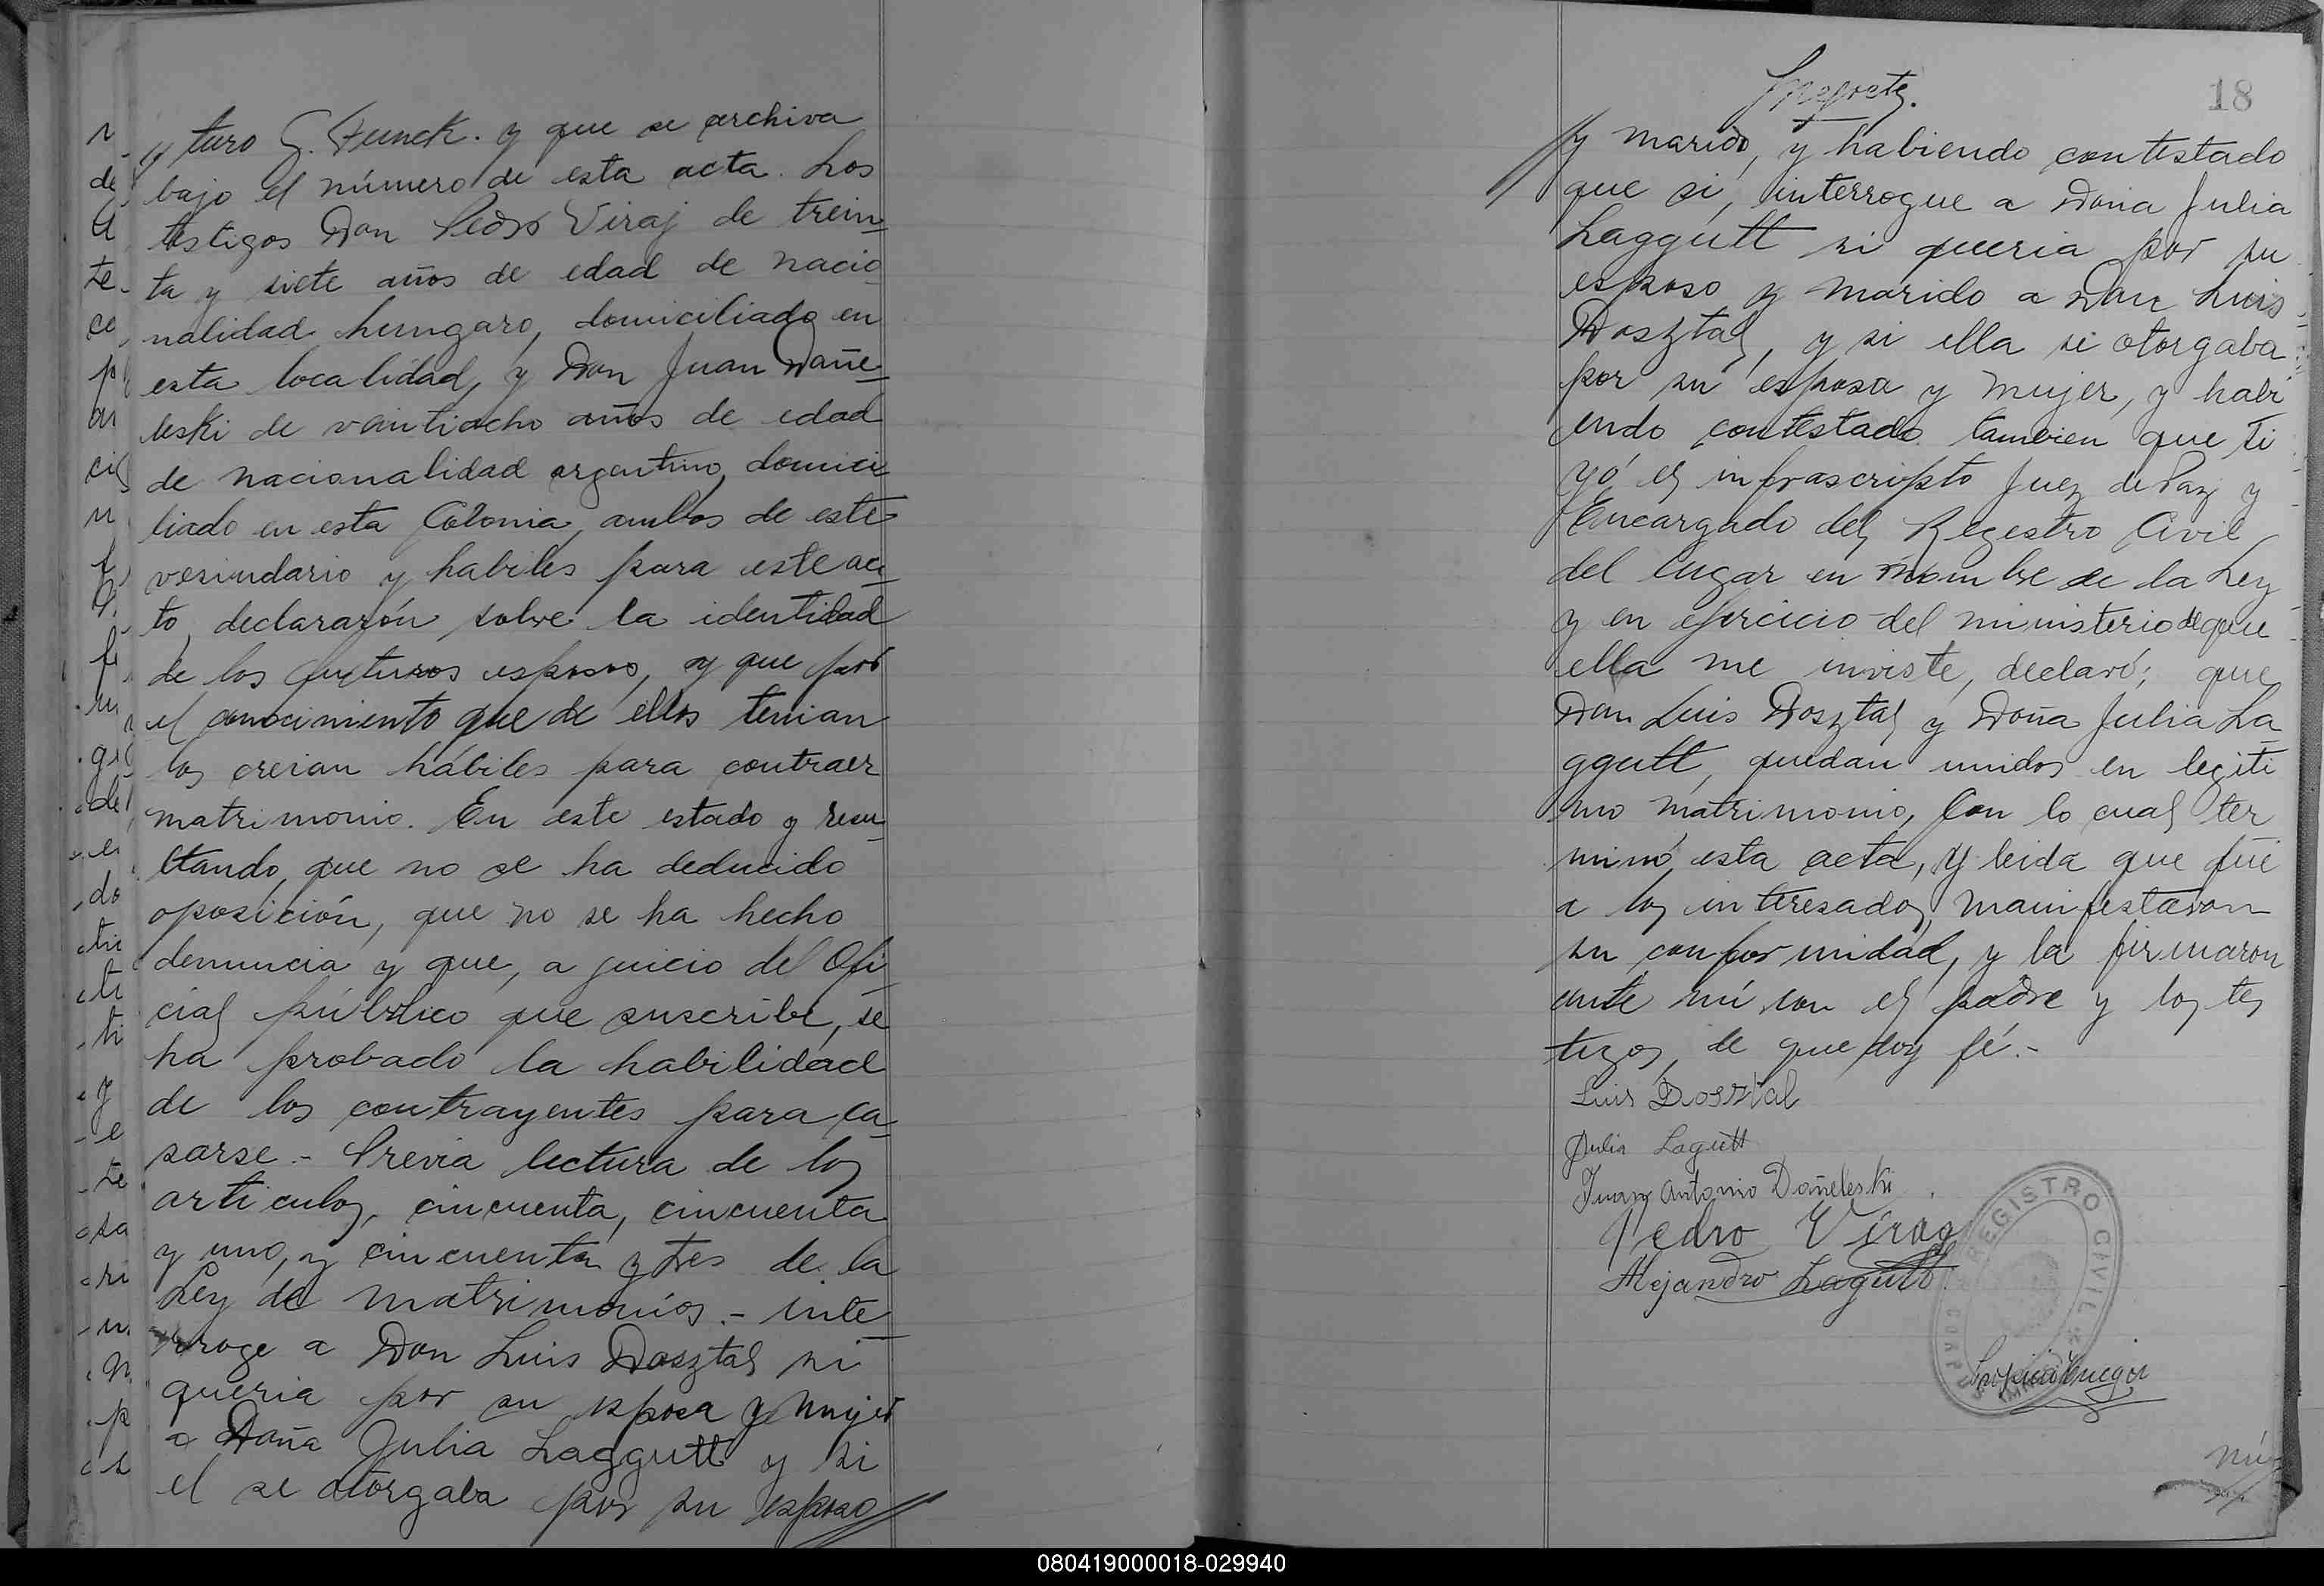 turo G. Funck. y que se archiva
bajo el número de esta acta. Los
testigos Don Pedro Viraj de trein
ta y siete años de edad de nacio
nalidad hungaro, domiciliado en
esta localidad, y Don Juan Dañe
leski de veintiocho años de edad
de nacionalidad argentino, domici
liado en esta Colonia, ambos de este
vesindario y habiles para este ac
to, declararón sobre la identidad
de los futuros esposos, y que por
el conocimiento que de ellos tenian
los creian hábiles para contraer
matrimonio. En este estado y resu
ltando, que no se ha deducido
oposición, que no se ha hecho
denuncia y que, a juicio del Ofi
cial público que suscribe, se
ha probado la habilidad
de los contrayentes para ca
sarse.- Previa lectura de los
articulos, cincuenta, cincuenta
y uno, y cincuenta y tres de la
Ley de matrimonios.- inte
rroge a Don Luis Dosztal si
queria por su esposa y mujer
a Doña Julia Laggutt y si
el se otorgaba por su esposo
18
y marido, y habiendo contestado
que si, interrogue a Doña Julia
Laggutt si queria por su
esposo y marido a Don Luis
Dosztal, y si ella se otorgaba
por su esposa y mujer, y habi
endo contestado tambien que si
yó el infrascripto Juez de Paz y
Encargado del Registro Civil
del lugar en nombre de la Ley
y en ejercicio del ministerio de que
ella me inviste, declaró; que
Don Luis Dosztal y Doña Julia La
ggutt, quedan unidos en legiti
mo matrimonio, Con lo cual ter
minó esta acta, y leida que fué
a los interesados, manifestaron
su conformidad, y la firmaron
ante mi con el padre y los tes
tigos, de que doy fé.-
Luis Dosztal
Julia Lagutt
Juan Antonio Dañeleski
Pedro Virag
Alejandro Lagutt
REGISTRO CIVIL
080419000018-029940